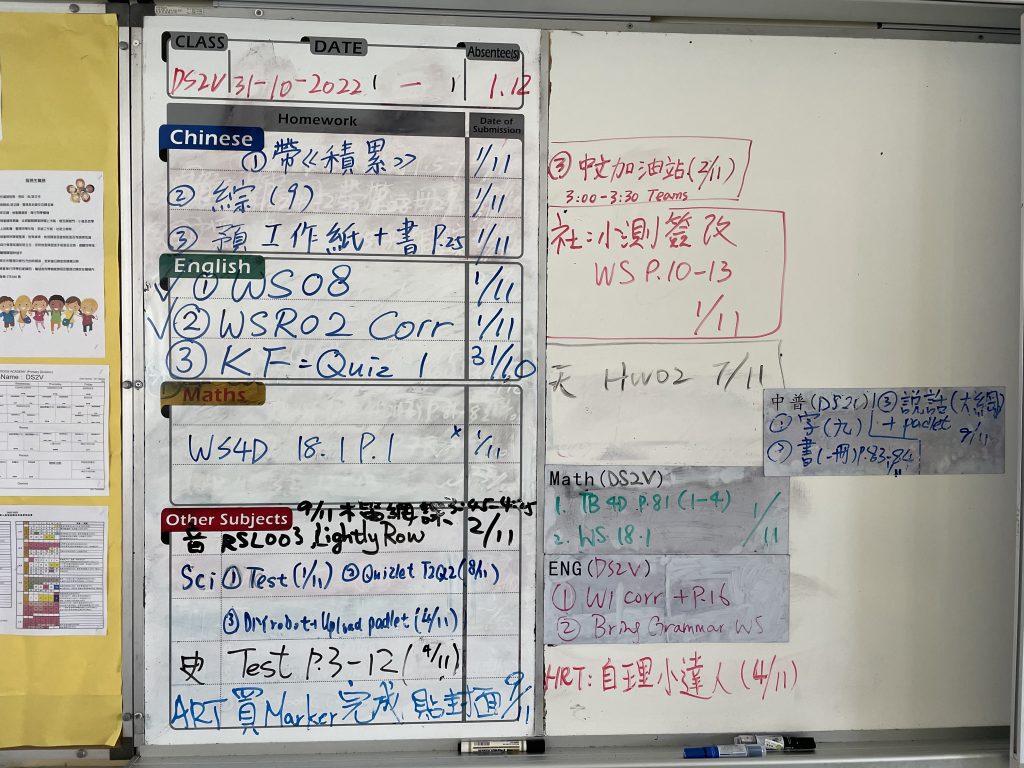 CLASS DATE Absentee(s)
DS2V 31-10-2022 ( 一 ) 1.12
Homework Date of Submission
Chinese
① 帶《積累》 1/11
② 綜 (9) 1/11
③ 預 工作紙+書 P.25 1/11
English
① WS08 1/11
② WSR02 Corr 1/11
③ KF = Quiz 1 31/10
Maths
WS4D 18.1 P.1 1/11
Other Subjects
9/11
音 RSL003 Lightly Row 2/11
Sci ① Test (1/11) ② Quizlet T2Q2 (8/11)
③ DIY robot + Upload padlet (4/11)
史 Test P.3-12 (4/11)
ART 買 Marker 完成 貼封面 9/11
③ 中文加油站 (2/11)
3:00-3:30 Teams
社:小測簽改
WS P.10-13
1/11
天 HW02 7/11
中普 (DS2C) ③ 說話 (大綱)
① 字 (九) + padlet 9/11
② 書(一冊) P.83-84
Math (DS2V)
1. TB 4D P.81 (1-4) 1/11
2. WS 18.1
ENG (DS2V)
① W1 corr + P.16
② Bring Grammar WS
HRT: 自理小達人 (4/11)
Name : DS2V